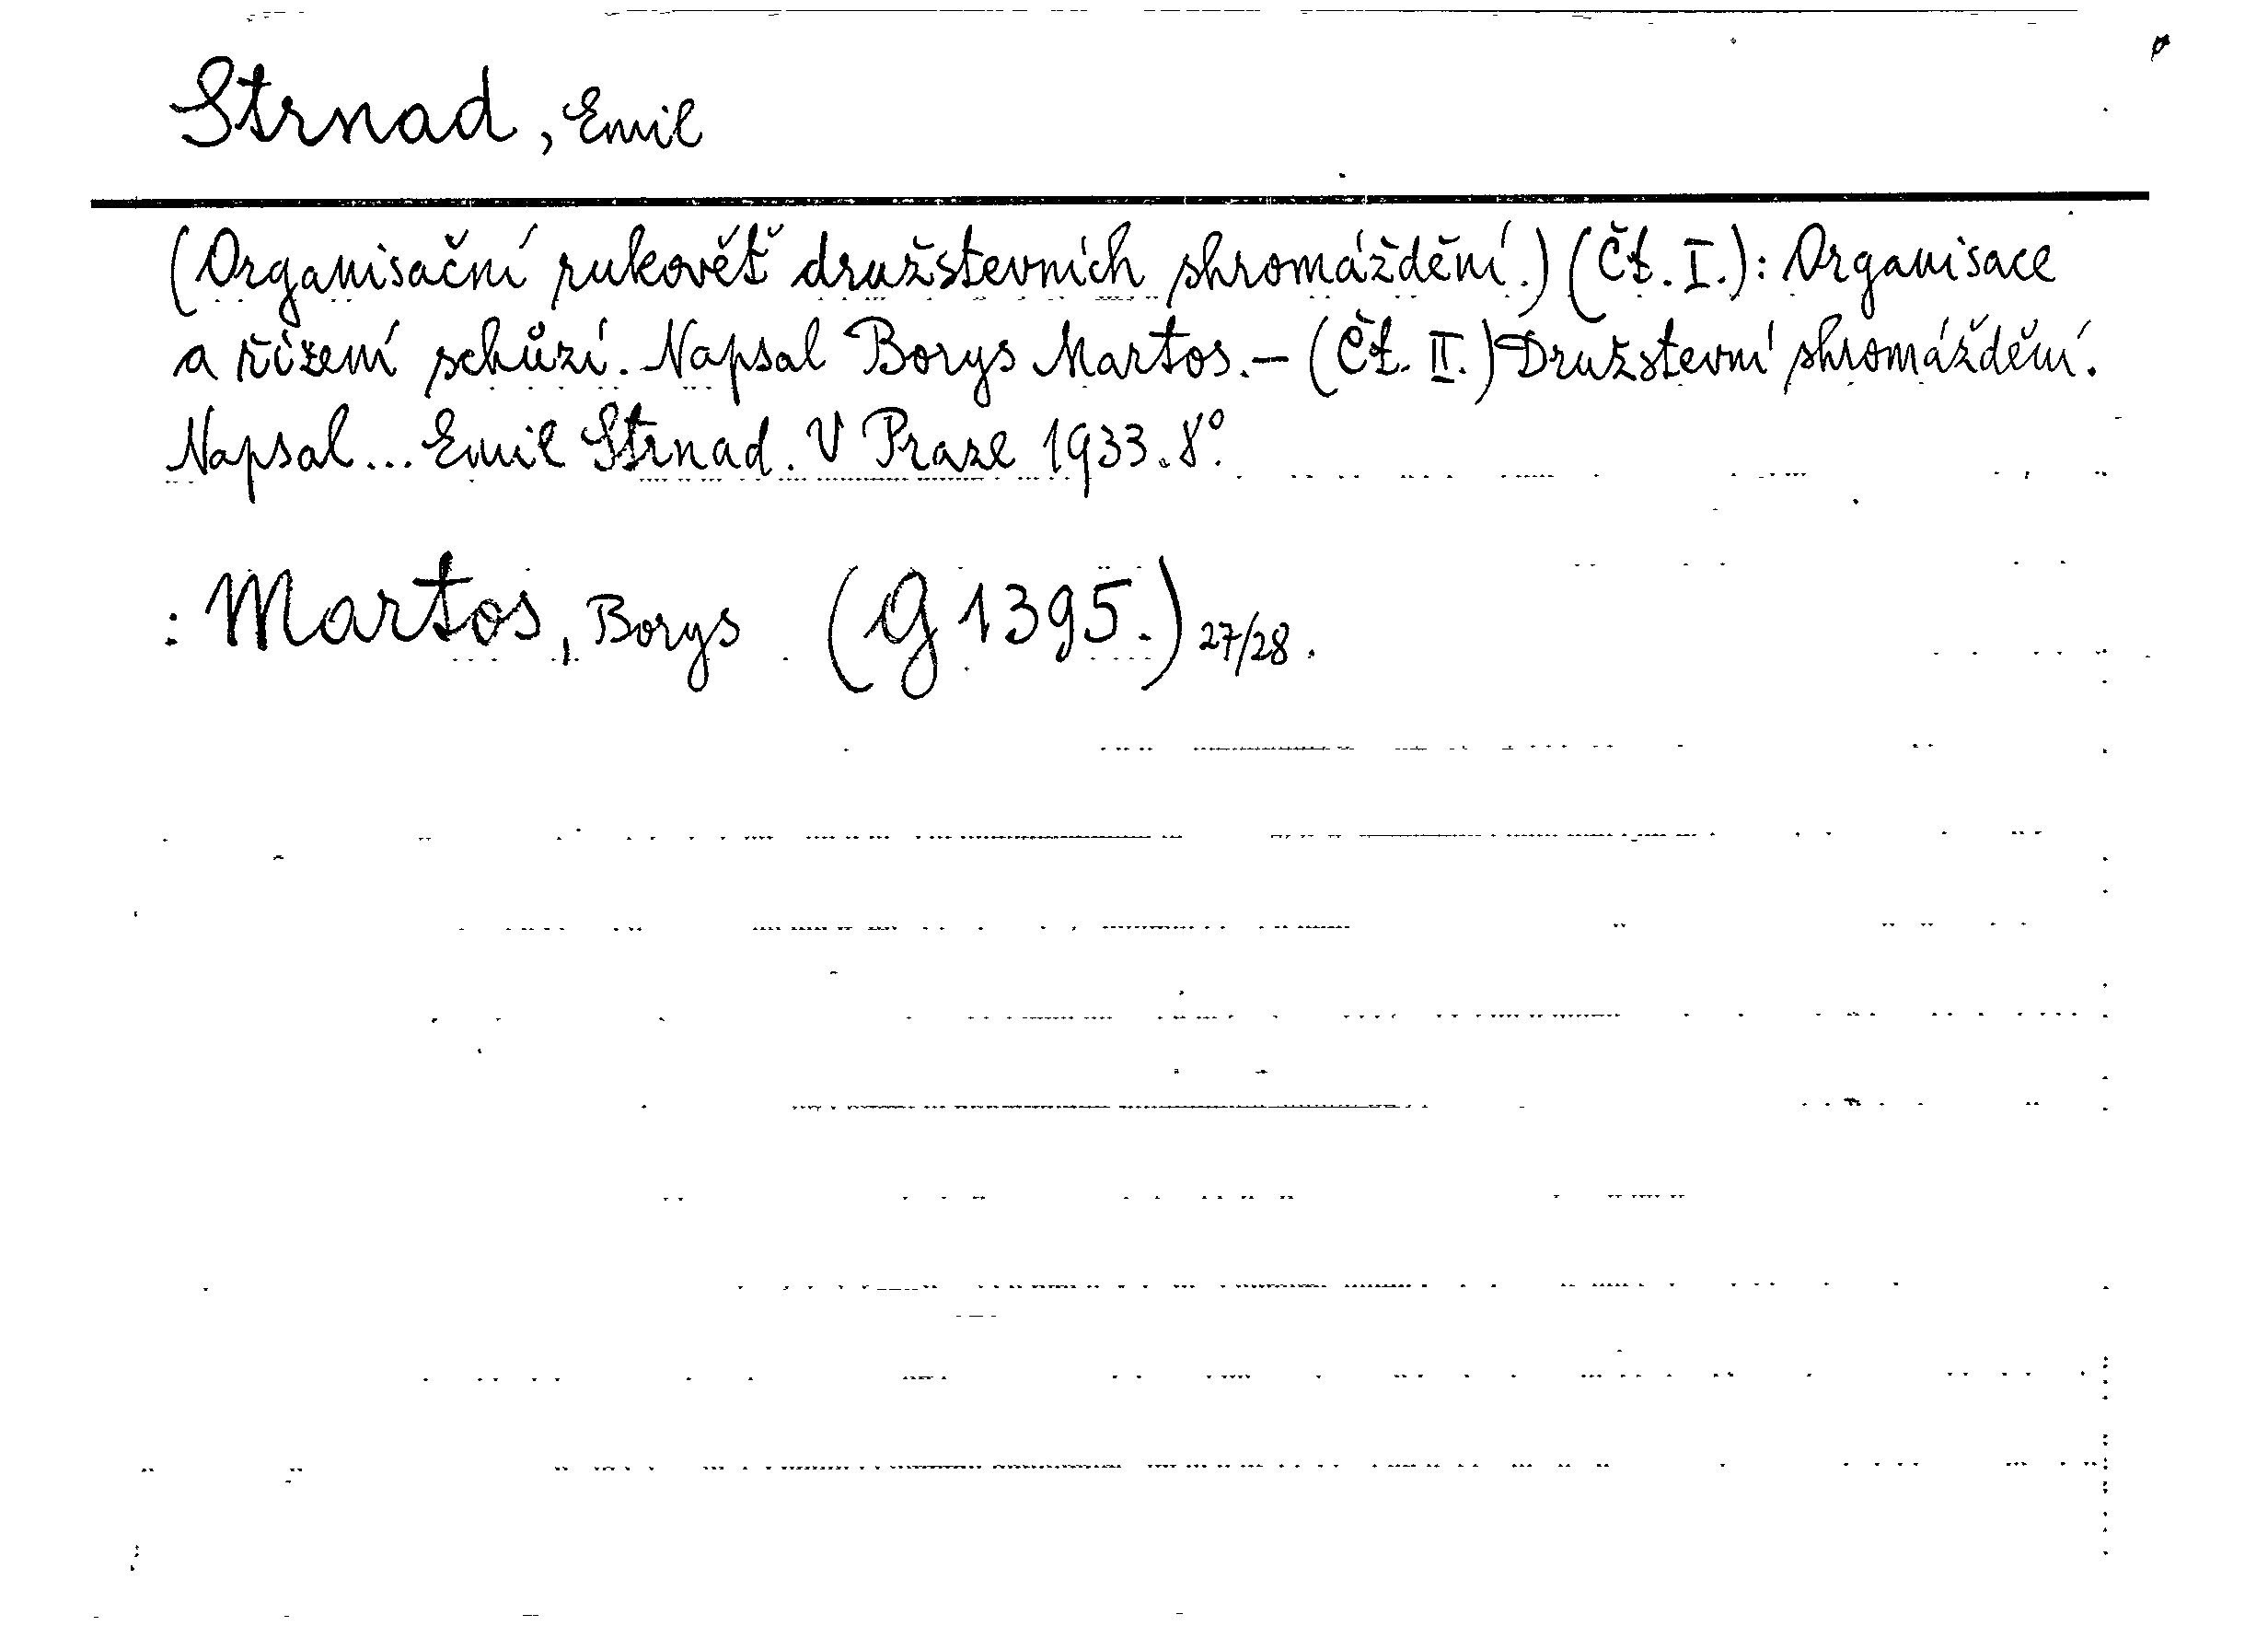 Strnad, Emil
(Organisační rukověť družstevních shromáždění.) (Čt. I.): Organisace
a řízení schůzí. Napsal Borys Martos. – (Čt. II.) Družstevní shromáždění.
Napsal... Emil Strnad. V Praze 1933. 8°.
: Martos, Borys (G 1395.) 27/28.